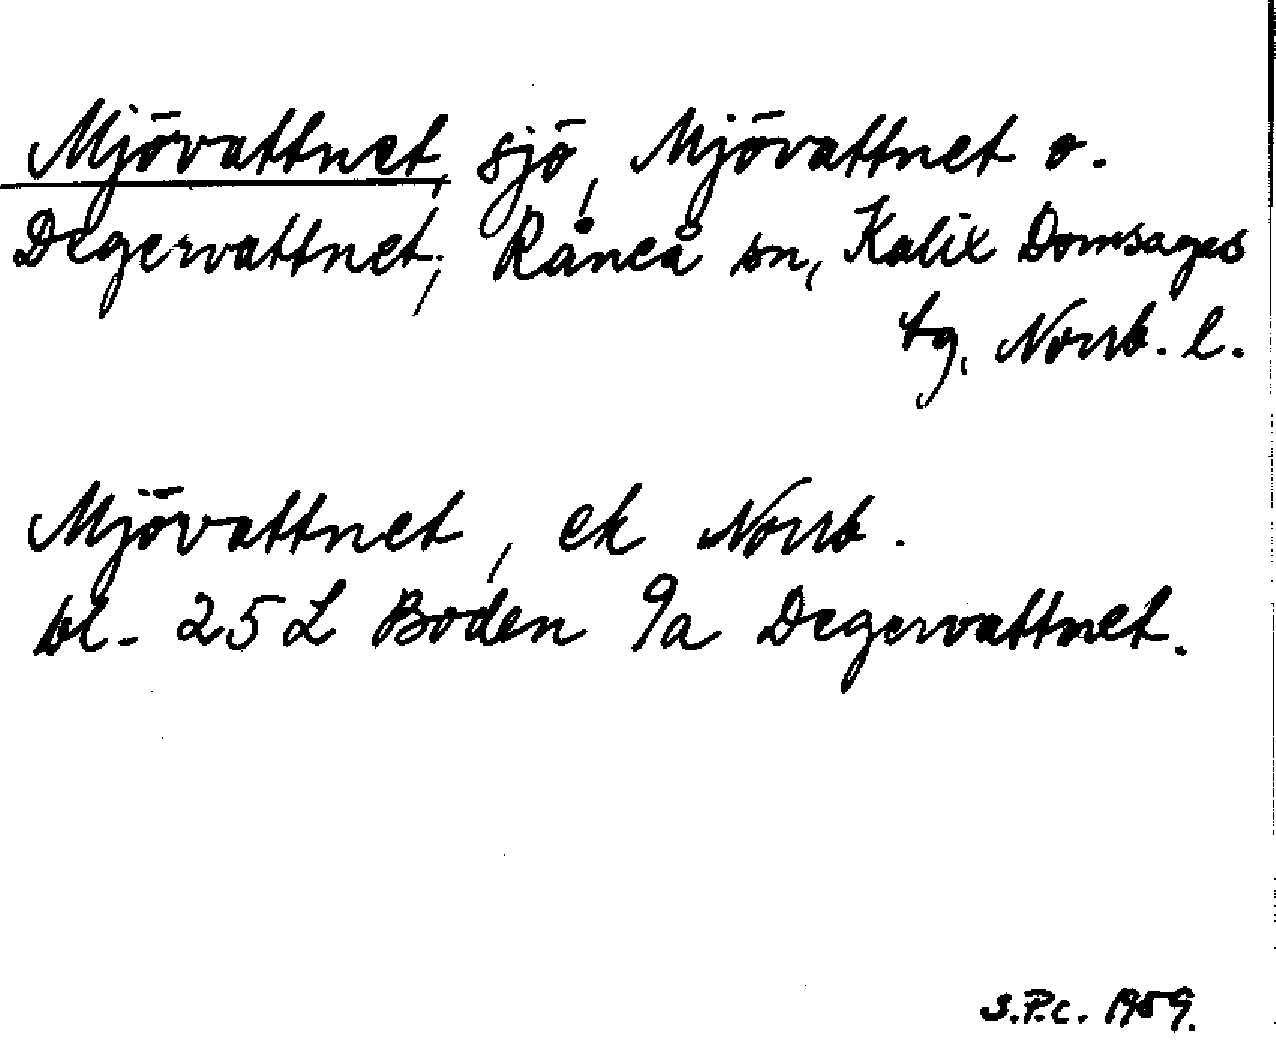 Mjövattnet, sjö, Mjövattnet o.
Degervattnet, Råneå sn, Kalix Domsagas
tg, Norrb. l.
Mjövattnet, ek Norrb.
bl. 25 L Boden 9a Degervattnet.
S.P.C. 1959.